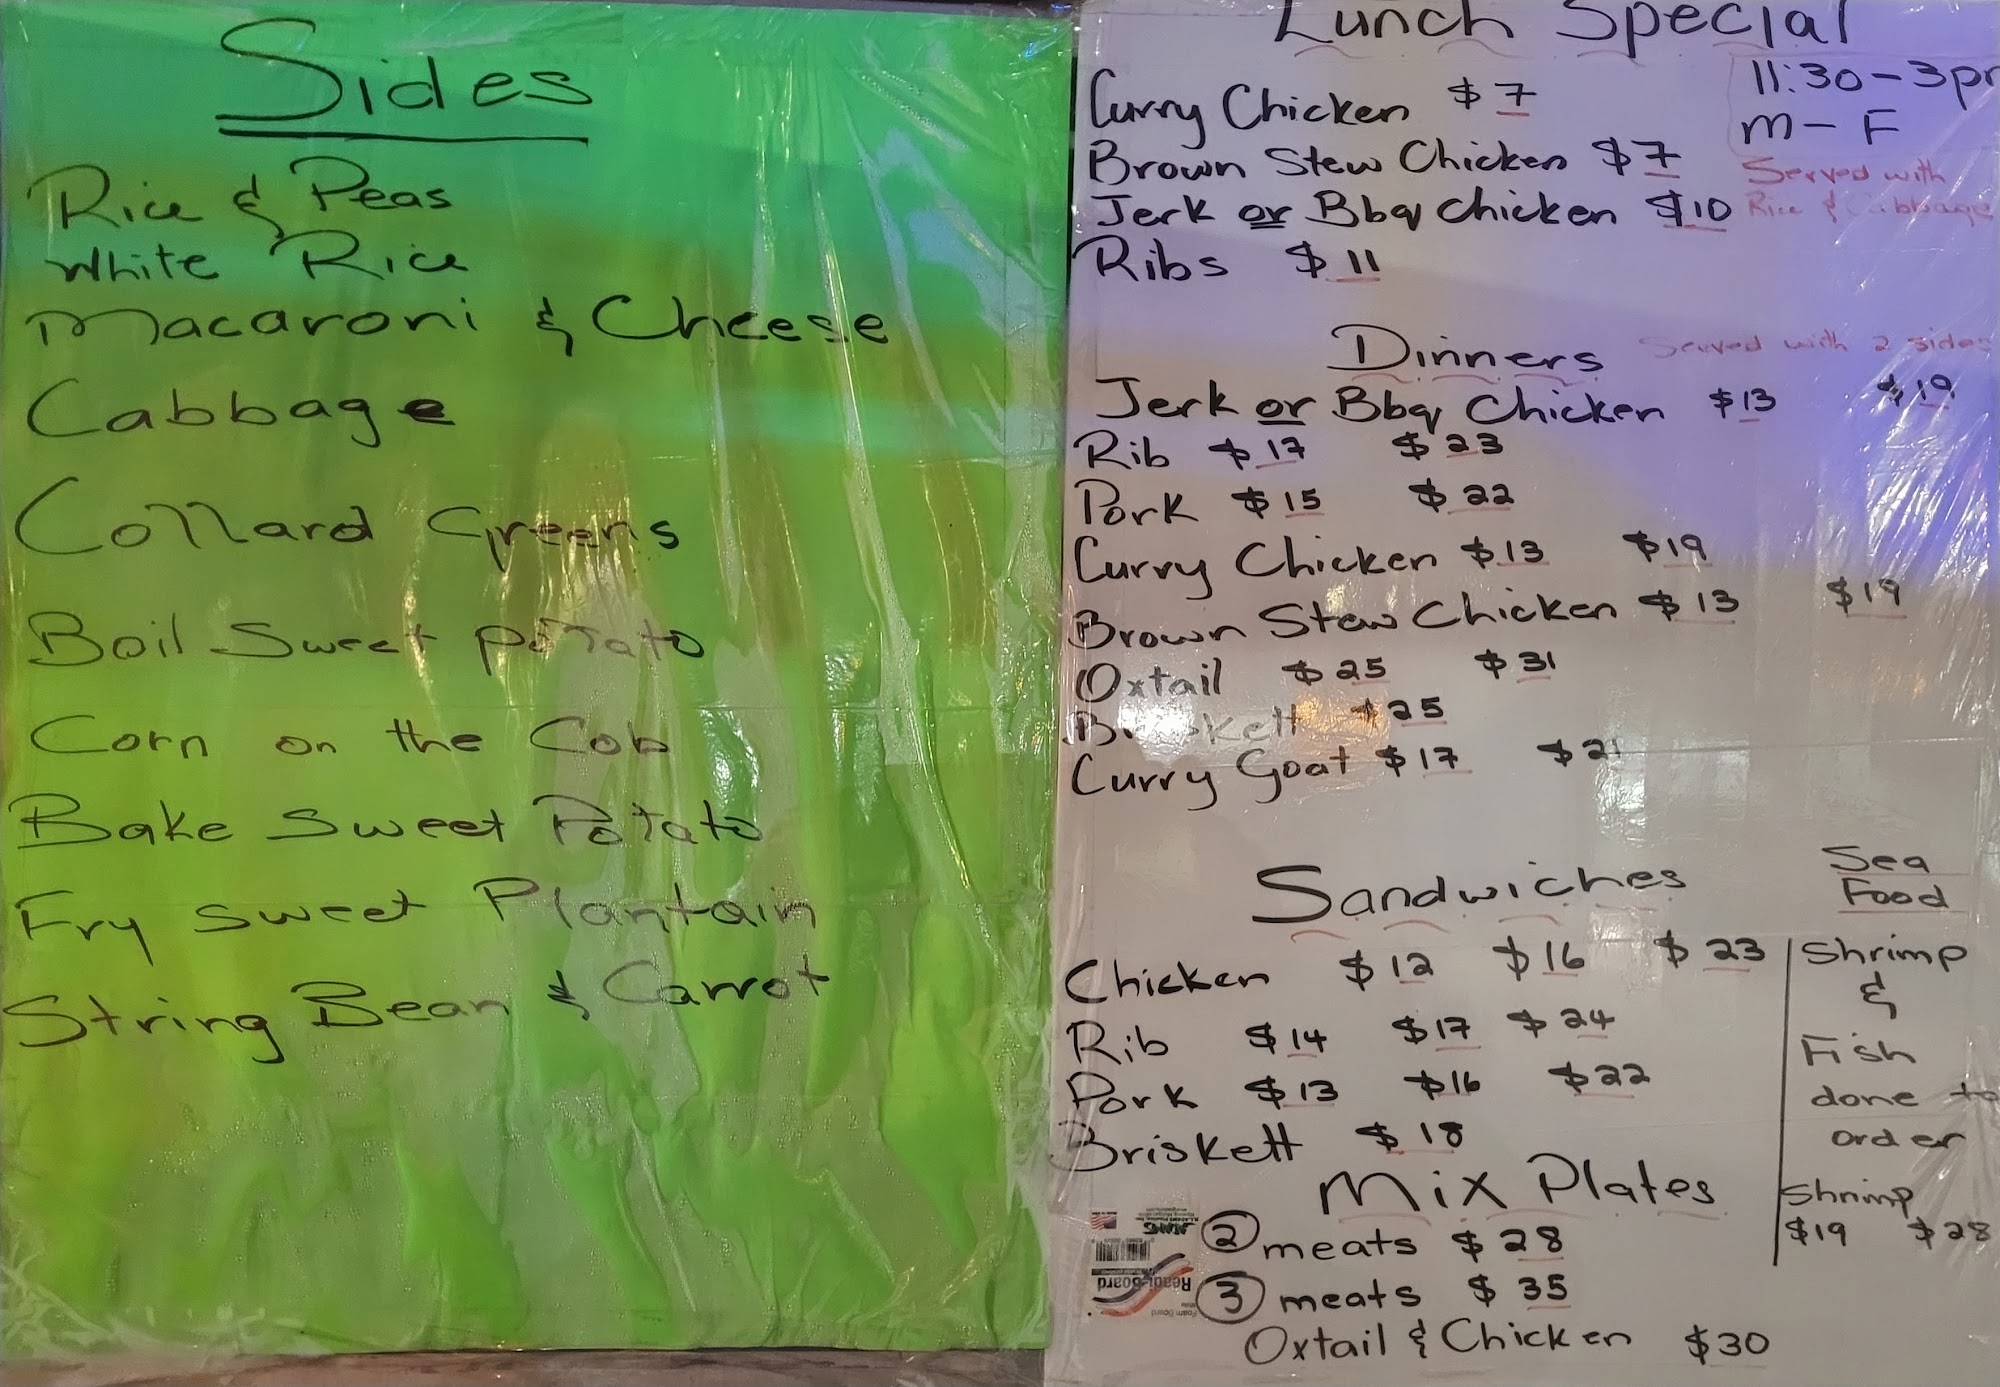 Sides
Rice & Peas
White Rice
Macaroni & Cheese
Cabbage
Collard Greens
Boil Sweet potato
Corn on the Cob
Bake Sweet Potato
Fry sweet Plantain
String Bean & Carrot
Lunch Special
11:30-3pm
M-F
Served with
Rice & Cabbage
Curry Chicken $7
Brown Stew Chicken $7
Jerk or Bbq Chicken $10
Ribs $11
Dinners Served with 2 sides
Jerk or Bbq Chicken $13 $19
Rib $17 $23
Pork $15 $22
Curry Chicken $13 $19
Brown Stew Chicken $13 $19
Oxtail $25 $31
Briskett $25
Curry Goat $17
Sandwiches
Chicken $12 $16 $23
Rib $14 $17 $24
Pork $13 $16 $22
Briskett $18
Sea
Food
Shrimp
&
Fish
done to
order
Shrimp
$19 $28
Mix Plates
2 meats $28
3 meats $35
Oxtail & Chicken $30
Readi-Board
Foam Board